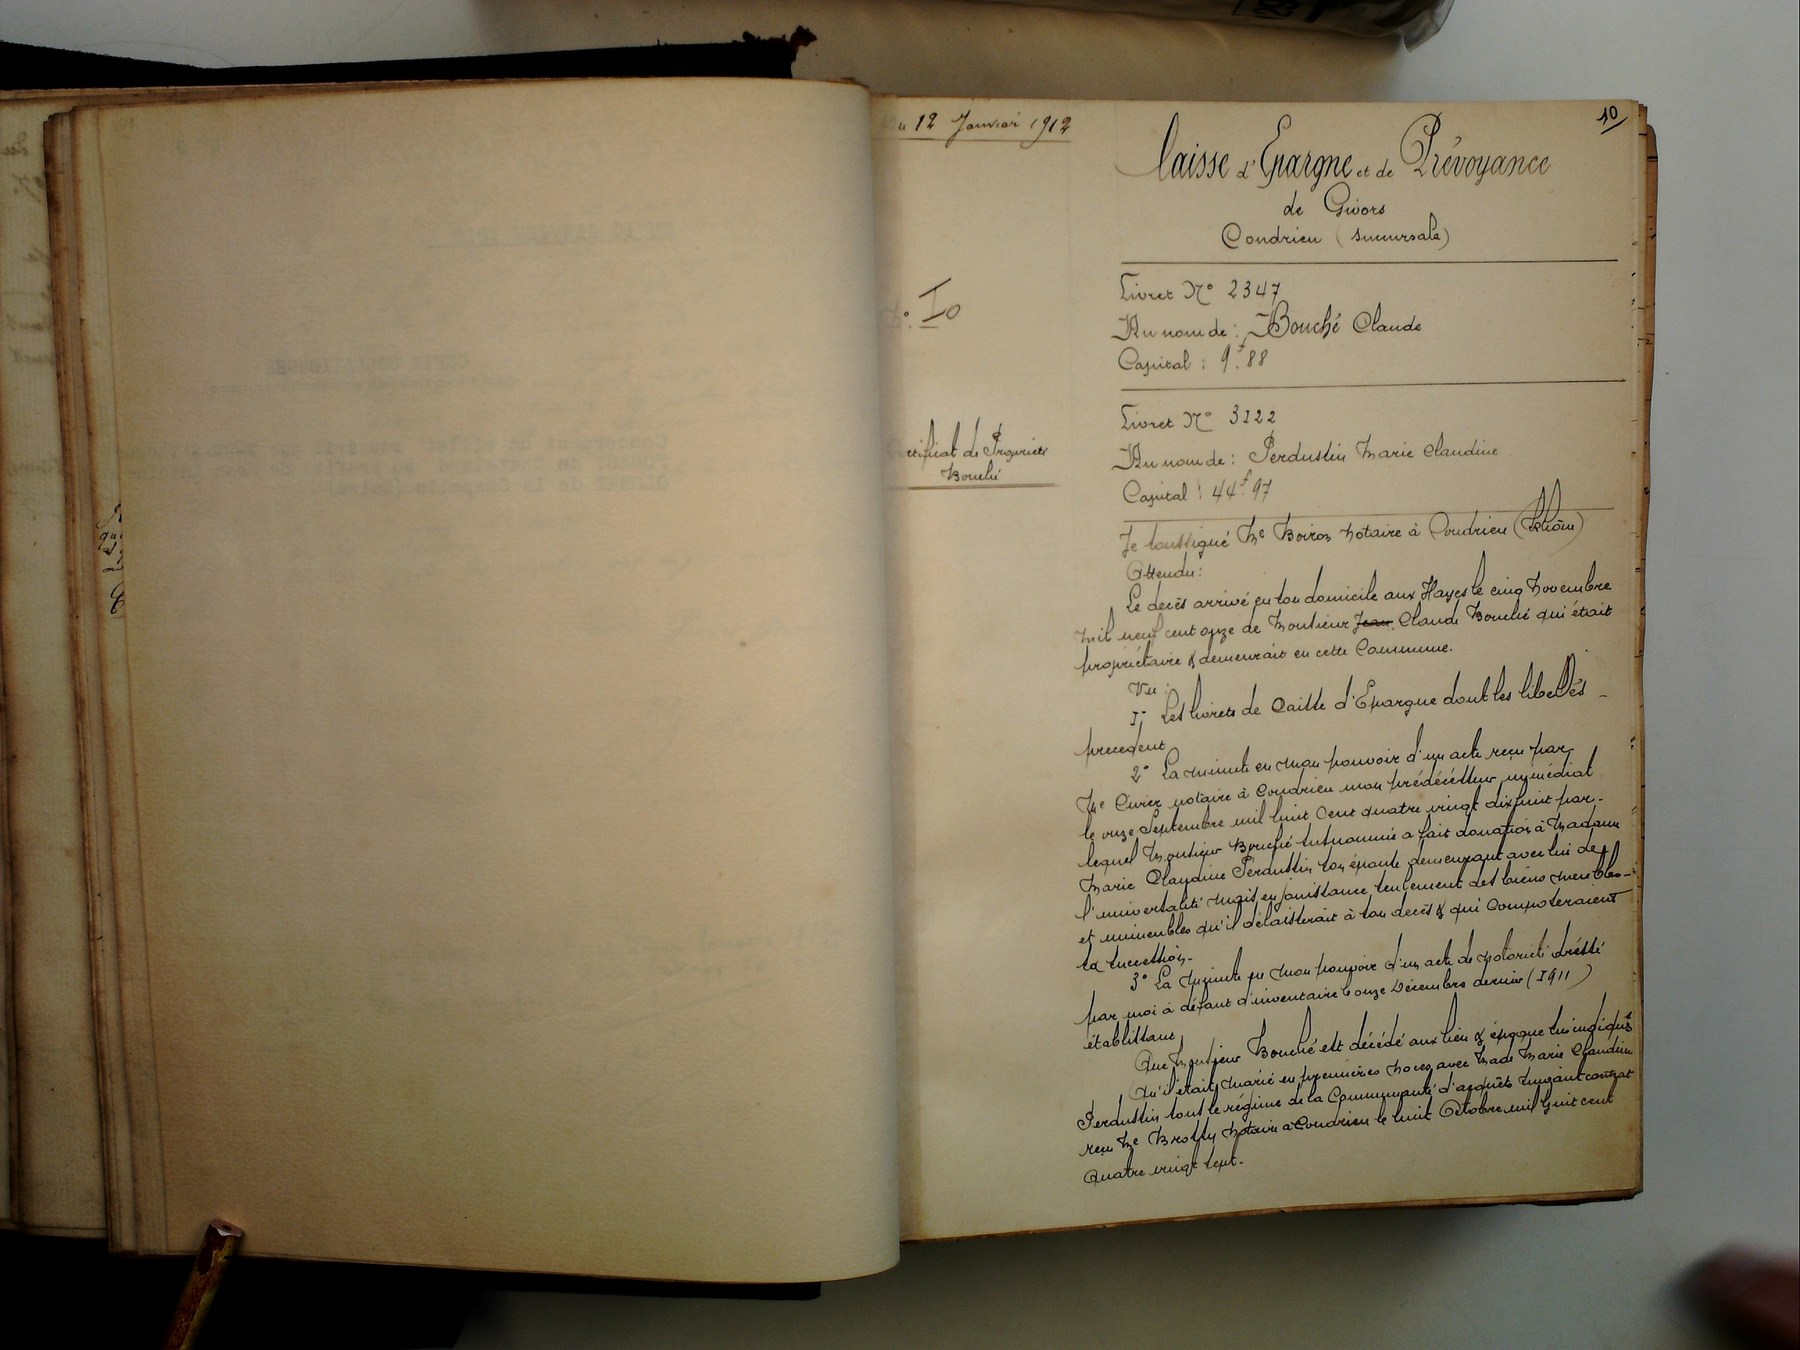 Du 12 Janvier 1912
N° 10
Certificat de Propriété
Bouché
10
Caisse d'Epargne et de Prévoyance
de Givors
Condrieu (succursale)
Livret N° 2347
Au nom de : Bouché Claude
Capital : 9f.88
Livret N° 3122
Au nom de : Perdustin Marie Claudine
Capital : 44f.97
Je soussigné Me Boiron notaire à Condrieu (Rhône)
Attendu :
Le decès arrivé en son domicile aux Hayes le cinq Novembre
mil neuf cent onze de Monsieur Jean Claude Bouché qui était
propriétaire & demeurait en cette Commune.
Vu :
1° Les livrets de Caisse d'Epargne dont les libellés
precedent
2° La minute en mon pouvoir d'un acte reçu par
Me notaire à Condrieu mon prédécésseur immédiat
le onze Septembre mil huit Cent quatre vingt dix huit par
lequel Monsieur Bouché susnommé a fait donation à Madame
Marie Claudine Perdustin son épouse demeurant avec lui de
l'universalité mais en jouissance seulement des biens meubles
et immeubles qu'il délaisserait à son decès & qui composeraient
sa succession.
3° La minute en mon pouvoir d'un acte de notoriété dréssé
par moi à défaut d'inventaire le onze Décembre dernier (1911)
établissant
Que Monsieur Bouché est décédé aux lieu & époque sus indiqués
Qu'il était marié en premières noces avec Made Marie Claudine
Perdustin sous le régime de la Communauté d'acquêts suivant contrat
reçu Me Brossy Notaire à Condrieu le huit Octobre mil huit cent
Quatre vingt sept.